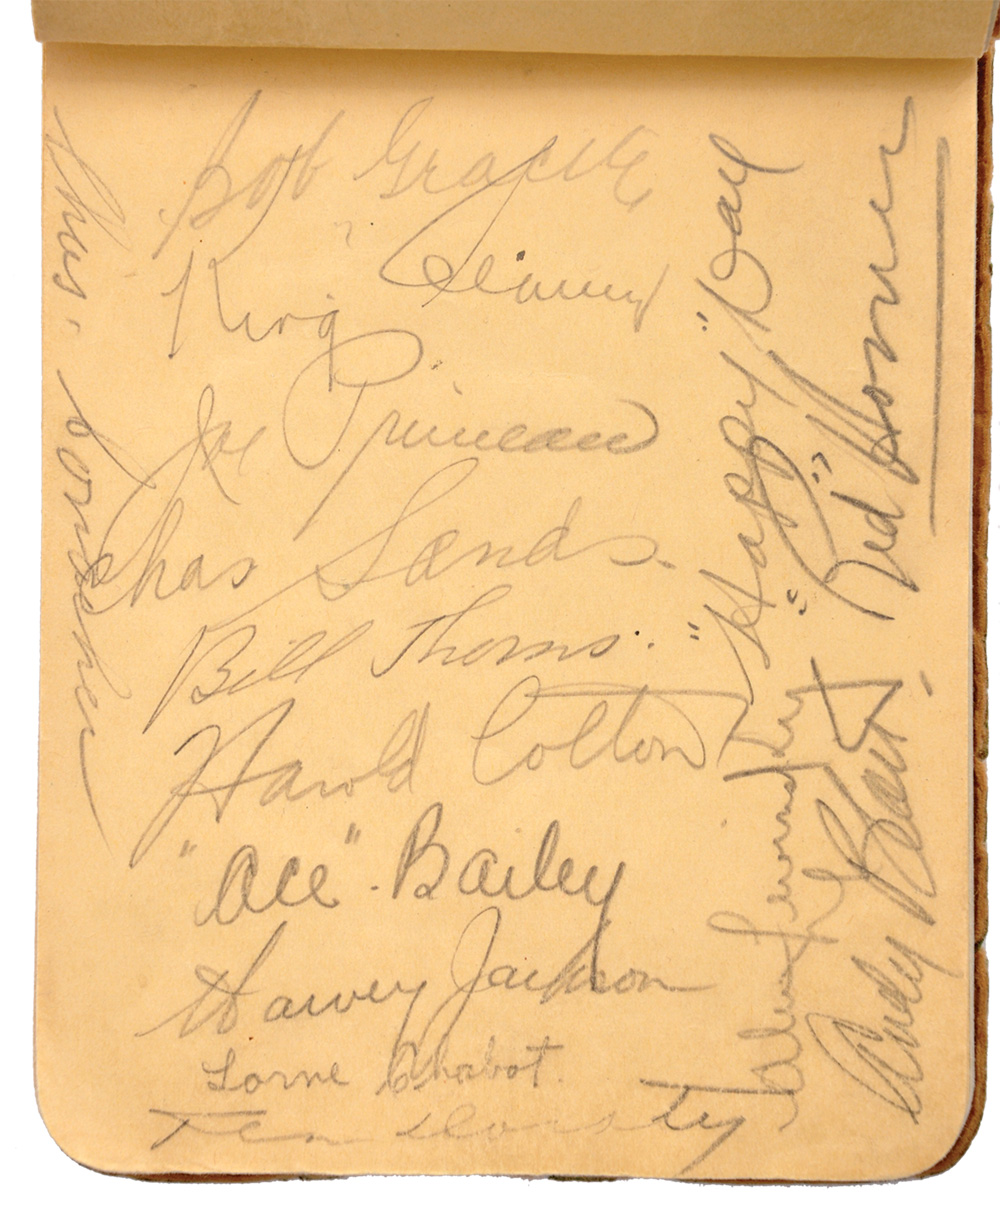 Bob Gracie
King Clancy
Joe Primeau
Chas Sands.
Bill Thoms.
Harold Cotton
"Ace" Bailey
Harvey Jackson
Lorne Chabot.
Ken Doraty
Chas. Conacher
"Happy" Day
"Red" Horner
Alex Levinsky
Andy Blair.